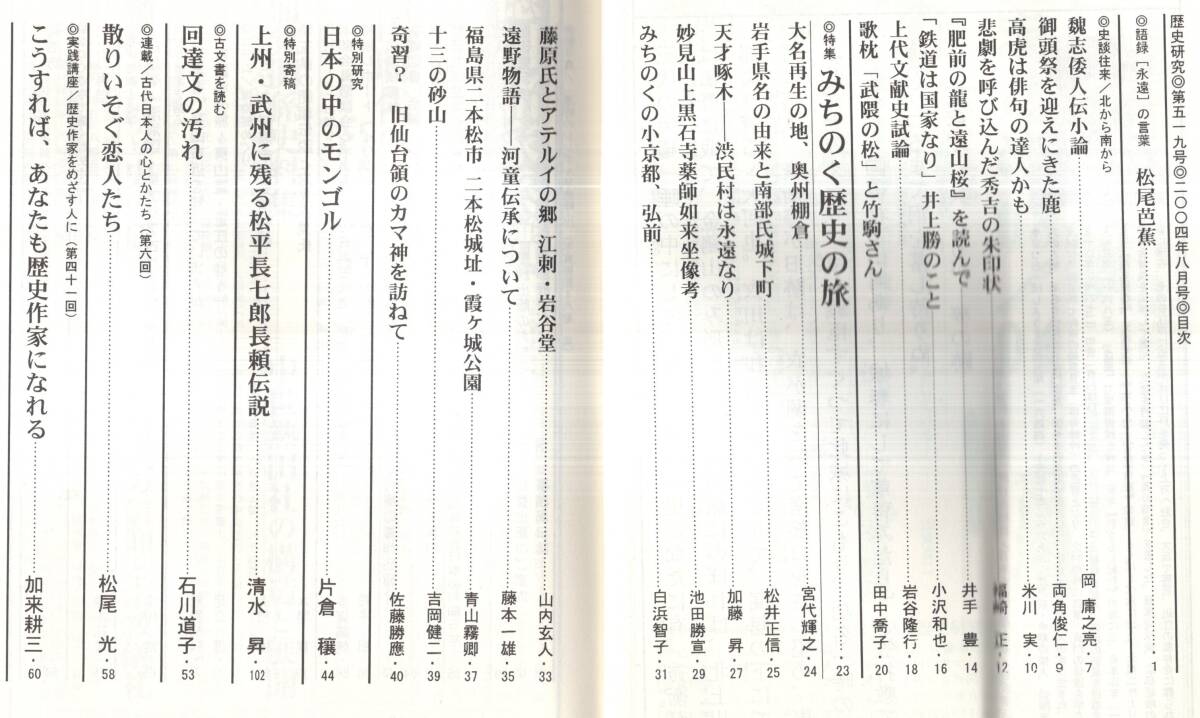 歴史研究◎第五一九号◎二〇〇四年八月号◎目次
◎語録［永遠］の言葉 松尾芭蕉・1
◎史談往来／北から南から
魏志倭人伝小論 岡 庸之亮・7
御頭祭を迎えにきた鹿 両角俊仁・9
高虎は俳句の達人かも 米川 実・10
悲劇を呼び込んだ秀吉の朱印状 福崎 正・12
『肥前の龍と遠山桜』を読んで 井手 豊・14
「鉄道は国家なり」井上勝のこと 小沢和也・16
上代文献史試論 岩谷隆行・18
歌枕「武隈の松」と竹駒さん 田中喬子・20
◎特集 みちのく歴史の旅・23
大名再生の地、奥州棚倉 宮代輝之・24
岩手県名の由来と南部氏城下町 松井正信・25
天才啄木――渋民村は永遠なり 加藤 昇・27
妙見山上黒石寺薬師如来坐像考 池田勝宣・29
みちのくの小京都、弘前 白浜智子・31
藤原氏とアテルイの郷 江刺・岩谷堂 山内玄人・33
遠野物語――河童伝承について 藤本一雄・35
福島県二本松市 二本松城址・霞ヶ城公園 青山霧卿・37
十三の砂山 吉岡健二・39
奇習？ 旧仙台領のカマ神を訪ねて 佐藤勝應・40
◎特別研究
日本の中のモンゴル 片倉 穰・44
◎特別寄稿
上州・武州に残る松平長七郎長頼伝説 清水 昇・102
◎古文書を読む
回達文の汚れ 石川道子・53
◎連載／古代日本人の心とかたち（第六回）
散りいそぐ恋人たち 松尾 光・58
◎実践講座／歴史作家をめざす人に（第四十一回）
こうすれば、あなたも歴史作家になれる 加来耕三・60